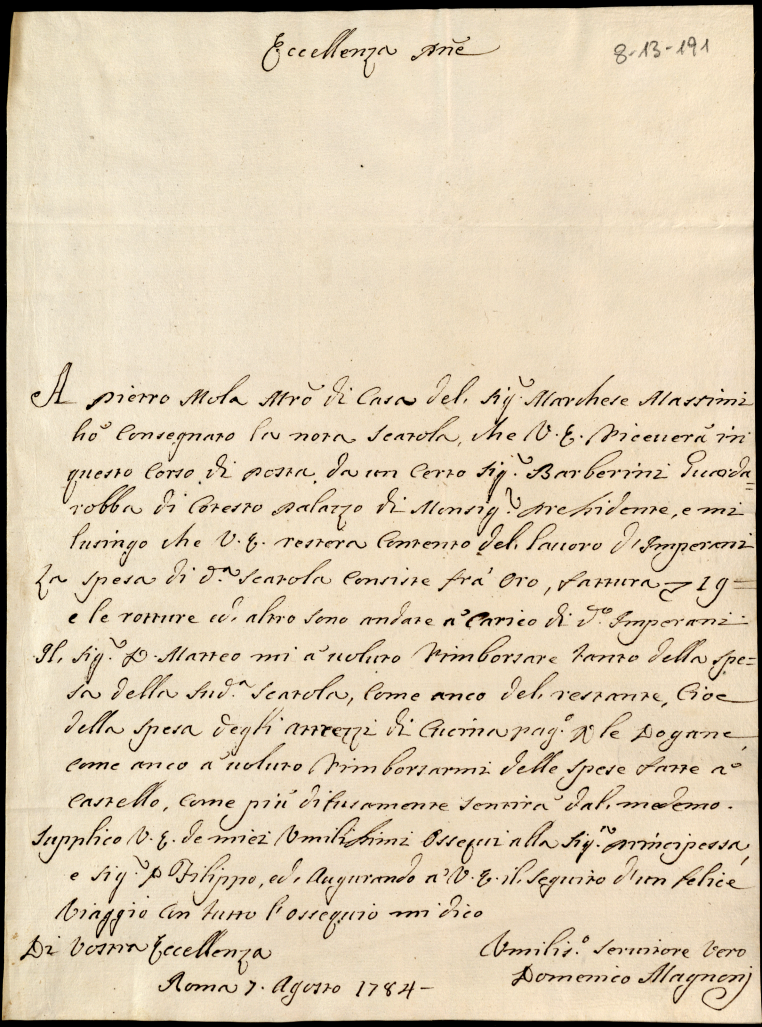 Eccellenza Pñe
8-13-191
A Pietro Mola Mrõ di Casa del Sig.r Marchese Massimi
hò Consegnato la nota Scatola, che V. E. Riceverà in
questo Corso di posta da un Certo Sig.r Barberini Guarda=
robba di Cotesto Palazzo di Monsig.r Presidente, e mi
lusingo che V. E. restera Contento del lavoro d'Imperani
La spesa di d.a Scatola Consiste frà Oro, fattura 19=
e le rotture ed altro sono andate a Carico di d.o Imperani
Il Sig.r D. Matteo mi à voluto Rimborsare tanto della spe=
sa della sud.a Scatola, Come anco del restante, Cioe
della spesa degli Attrezzi di Cucina pag.o P le Dogane
Come anco a voluto Rimborsarmi delle spese fatte a
Castello, Come più difusamente sentirà dal medemo.
Supplico V. E. de miei Umilissimi Ossequi alla Sig.ra Principessa,
e Sig.r D Filippo, ed Augurando a V. E. il seguito d'un felice
Viaggio Con tutto l'ossequio mi dico
Di Vostra Eccellenza
Umilis.o Servitore Vero
Domenico Magnonj
Roma 7. Agosto 1784-